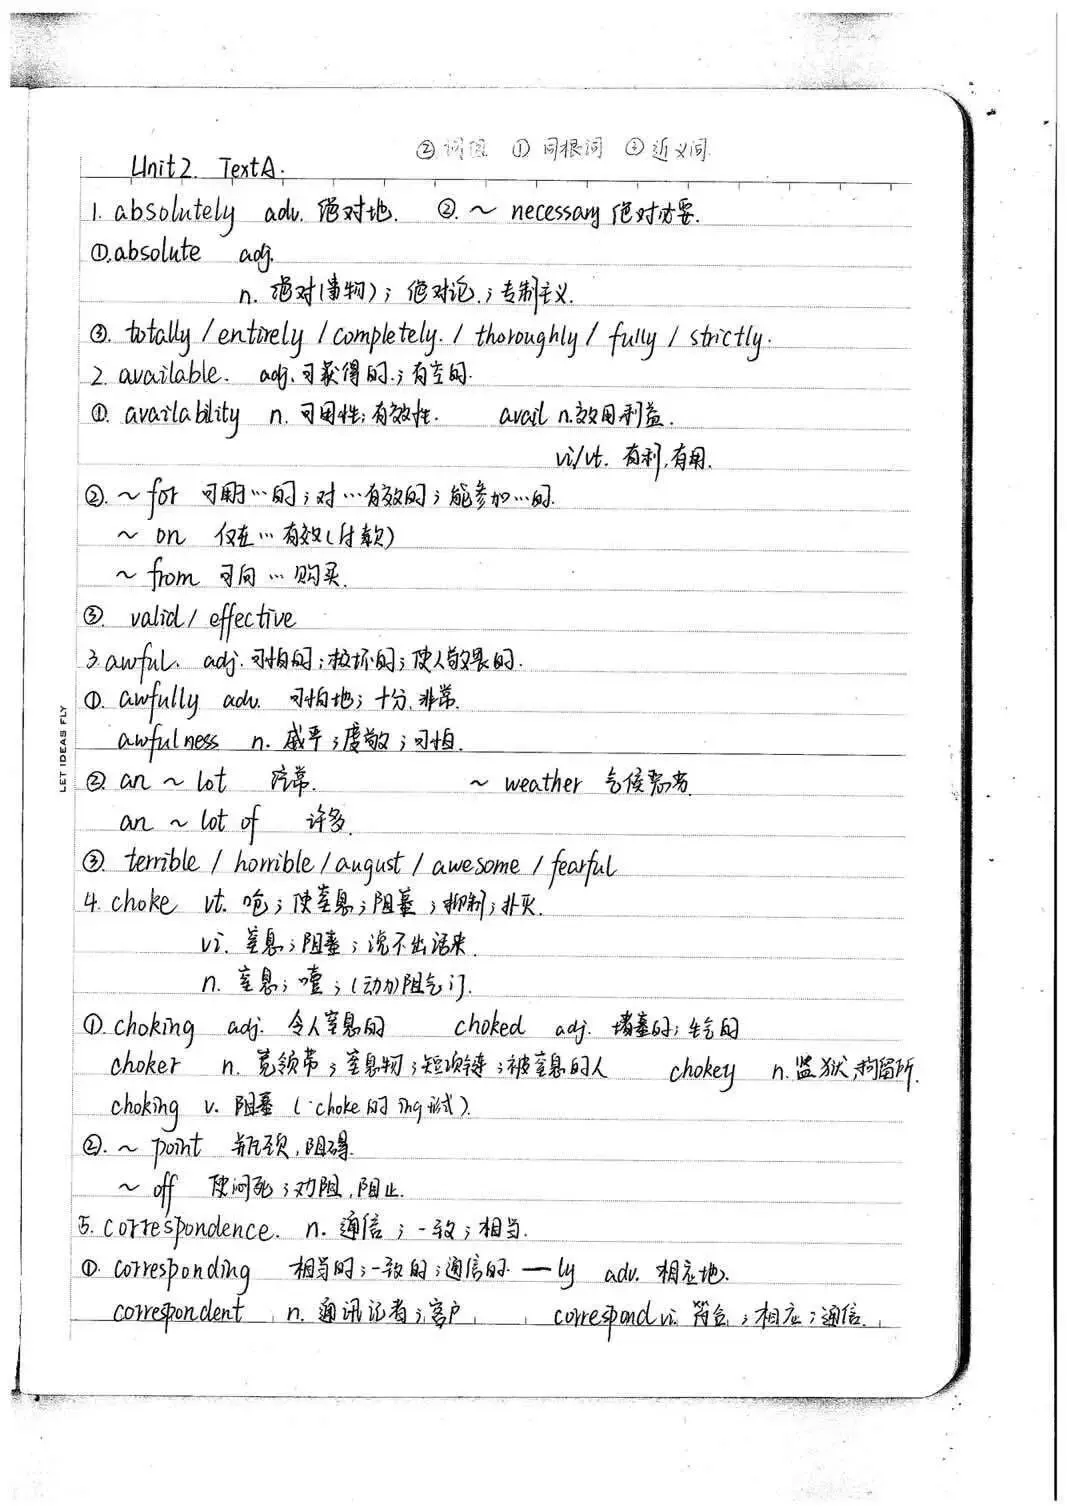 ②词组 ①同根词 ③近义词
Unit2. TextA.
1. absolutely adv. 绝对地. ②. ~ necessary 绝对必要.
①.absolute adj.
n. 绝对(事物); 绝对论.; 专制主义.
③. totally / entirely / completely. / thoroughly / fully / strictly.
2. available. adj. 可获得的.; 有空的.
①. availability n. 可用性; 有效性. avail n.效用 利益.
vi/vt. 有利,有用.
②. ~ for 可用于…的; 对…有效的; 能参加…的.
~ on 仅在…有效(付款)
~ from 可向…购买.
③. valid / effective
3. awful. adj. 可怕的; 极坏的; 使人敬畏的.
①. awfully adv. 可怕地; 十分, 非常.
awfulness n. 威严; 虔敬; 可怕.
②. an ~ lot 非常. ~ weather 气候恶劣.
an ~ lot of 许多.
③. terrible / horrible / august / awesome / fearful
4. choke vt. 呛; 使窒息; 阻塞; 抑制; 扑灭.
vi. 窒息; 阻塞; 说不出话来.
n. 窒息; 噎; (动力)阻气门.
①. choking adj. 令人窒息的 choked adj. 堵塞的; 生气的
choker n. 宽领带; 窒息物; 短项链; 被窒息的人 chokey n.监狱,拘留所.
choking v. 阻塞 (choke的ing形式).
②. ~ point 瓶颈, 阻碍.
~ off 使闷死; 劝阻, 阻止.
5. correspondence. n. 通信; 一致; 相当.
①. corresponding 相当的; 一致的; 通信的. —ly adv. 相应地.
correspondent n. 通讯记者; 客户 correspond vi. 符合; 相应; 通信.
LET IDEAS FLY